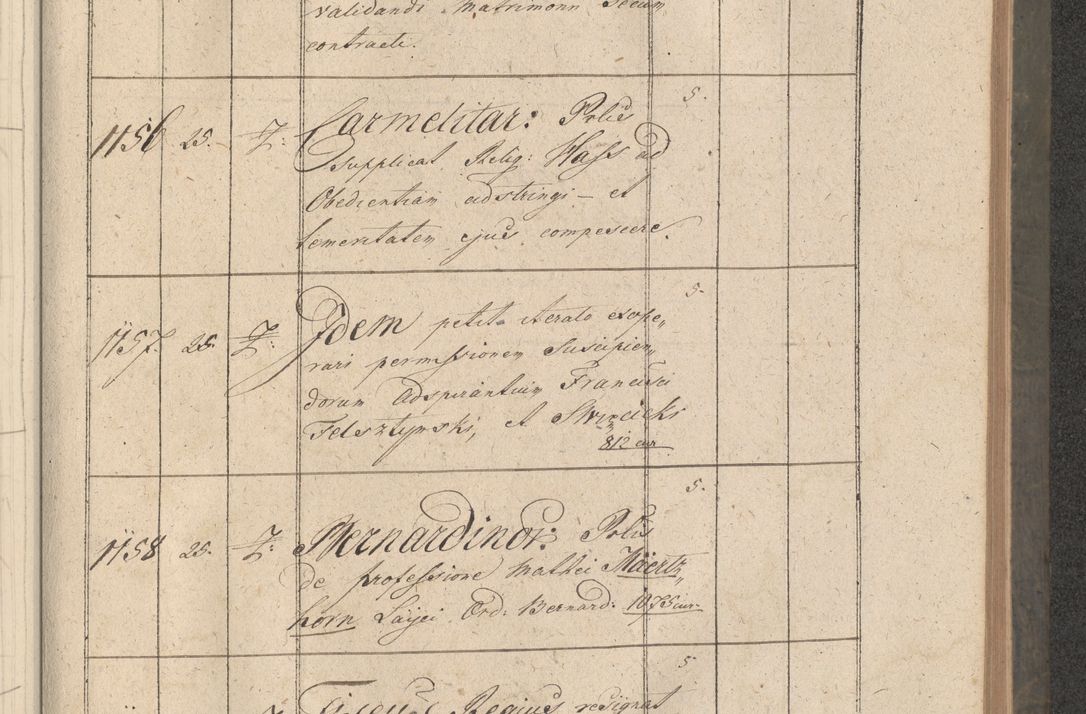 validandi Matrimonii secum
contracti.
5.
1156 25. Z: Carmelitar: Polis
supplicat Relig: Hass ad
Obedientiam adstringi – et
temeritatem ejus compescere.
5.
1157. 25. Z: Idem petit iterato exope„
rari permissionem suscipien„
dorum Adspirantium Francisci
Felsztynski, et
812 cur
5.
1158 25. Z: Bernardinor: Polis
de professione Mathei Käertz„
horn Laijci Ord: Bernard: 1075 cur.
5
Regius resignat